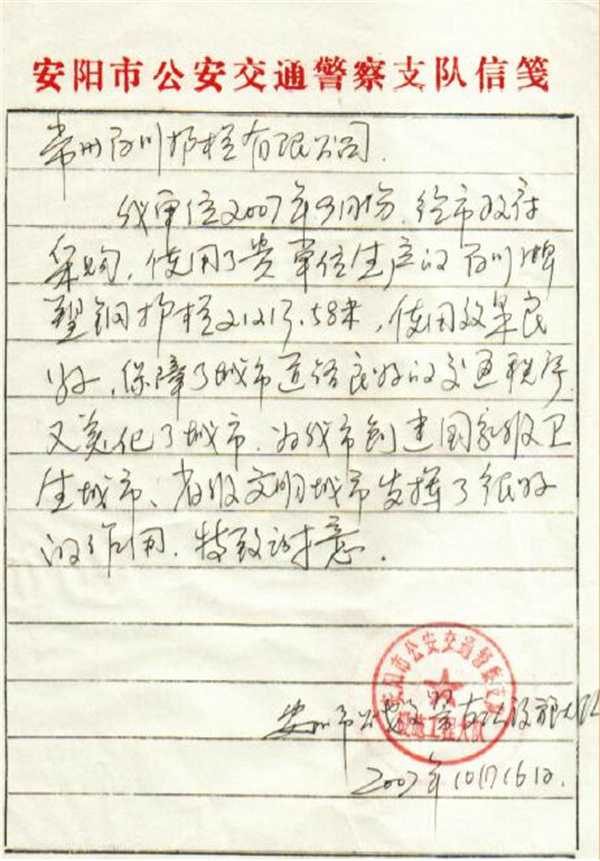 安阳市公安交通警察支队信笺
常州百川护栏有限公司.
我单位于2007年9月份.经市政府
采购,使用了贵单位生产的百川牌
塑钢护栏 米,使用效果良
好,保障了城市道路良好的交通秩序
又美化了城市.为我市创建国家级卫
生城市、省级文明城市发挥了很好
的作用.特致谢意.
安阳市公安交通警察支队
设施工程大队
安阳市公安交警支队设施大队
2007年10月16日.